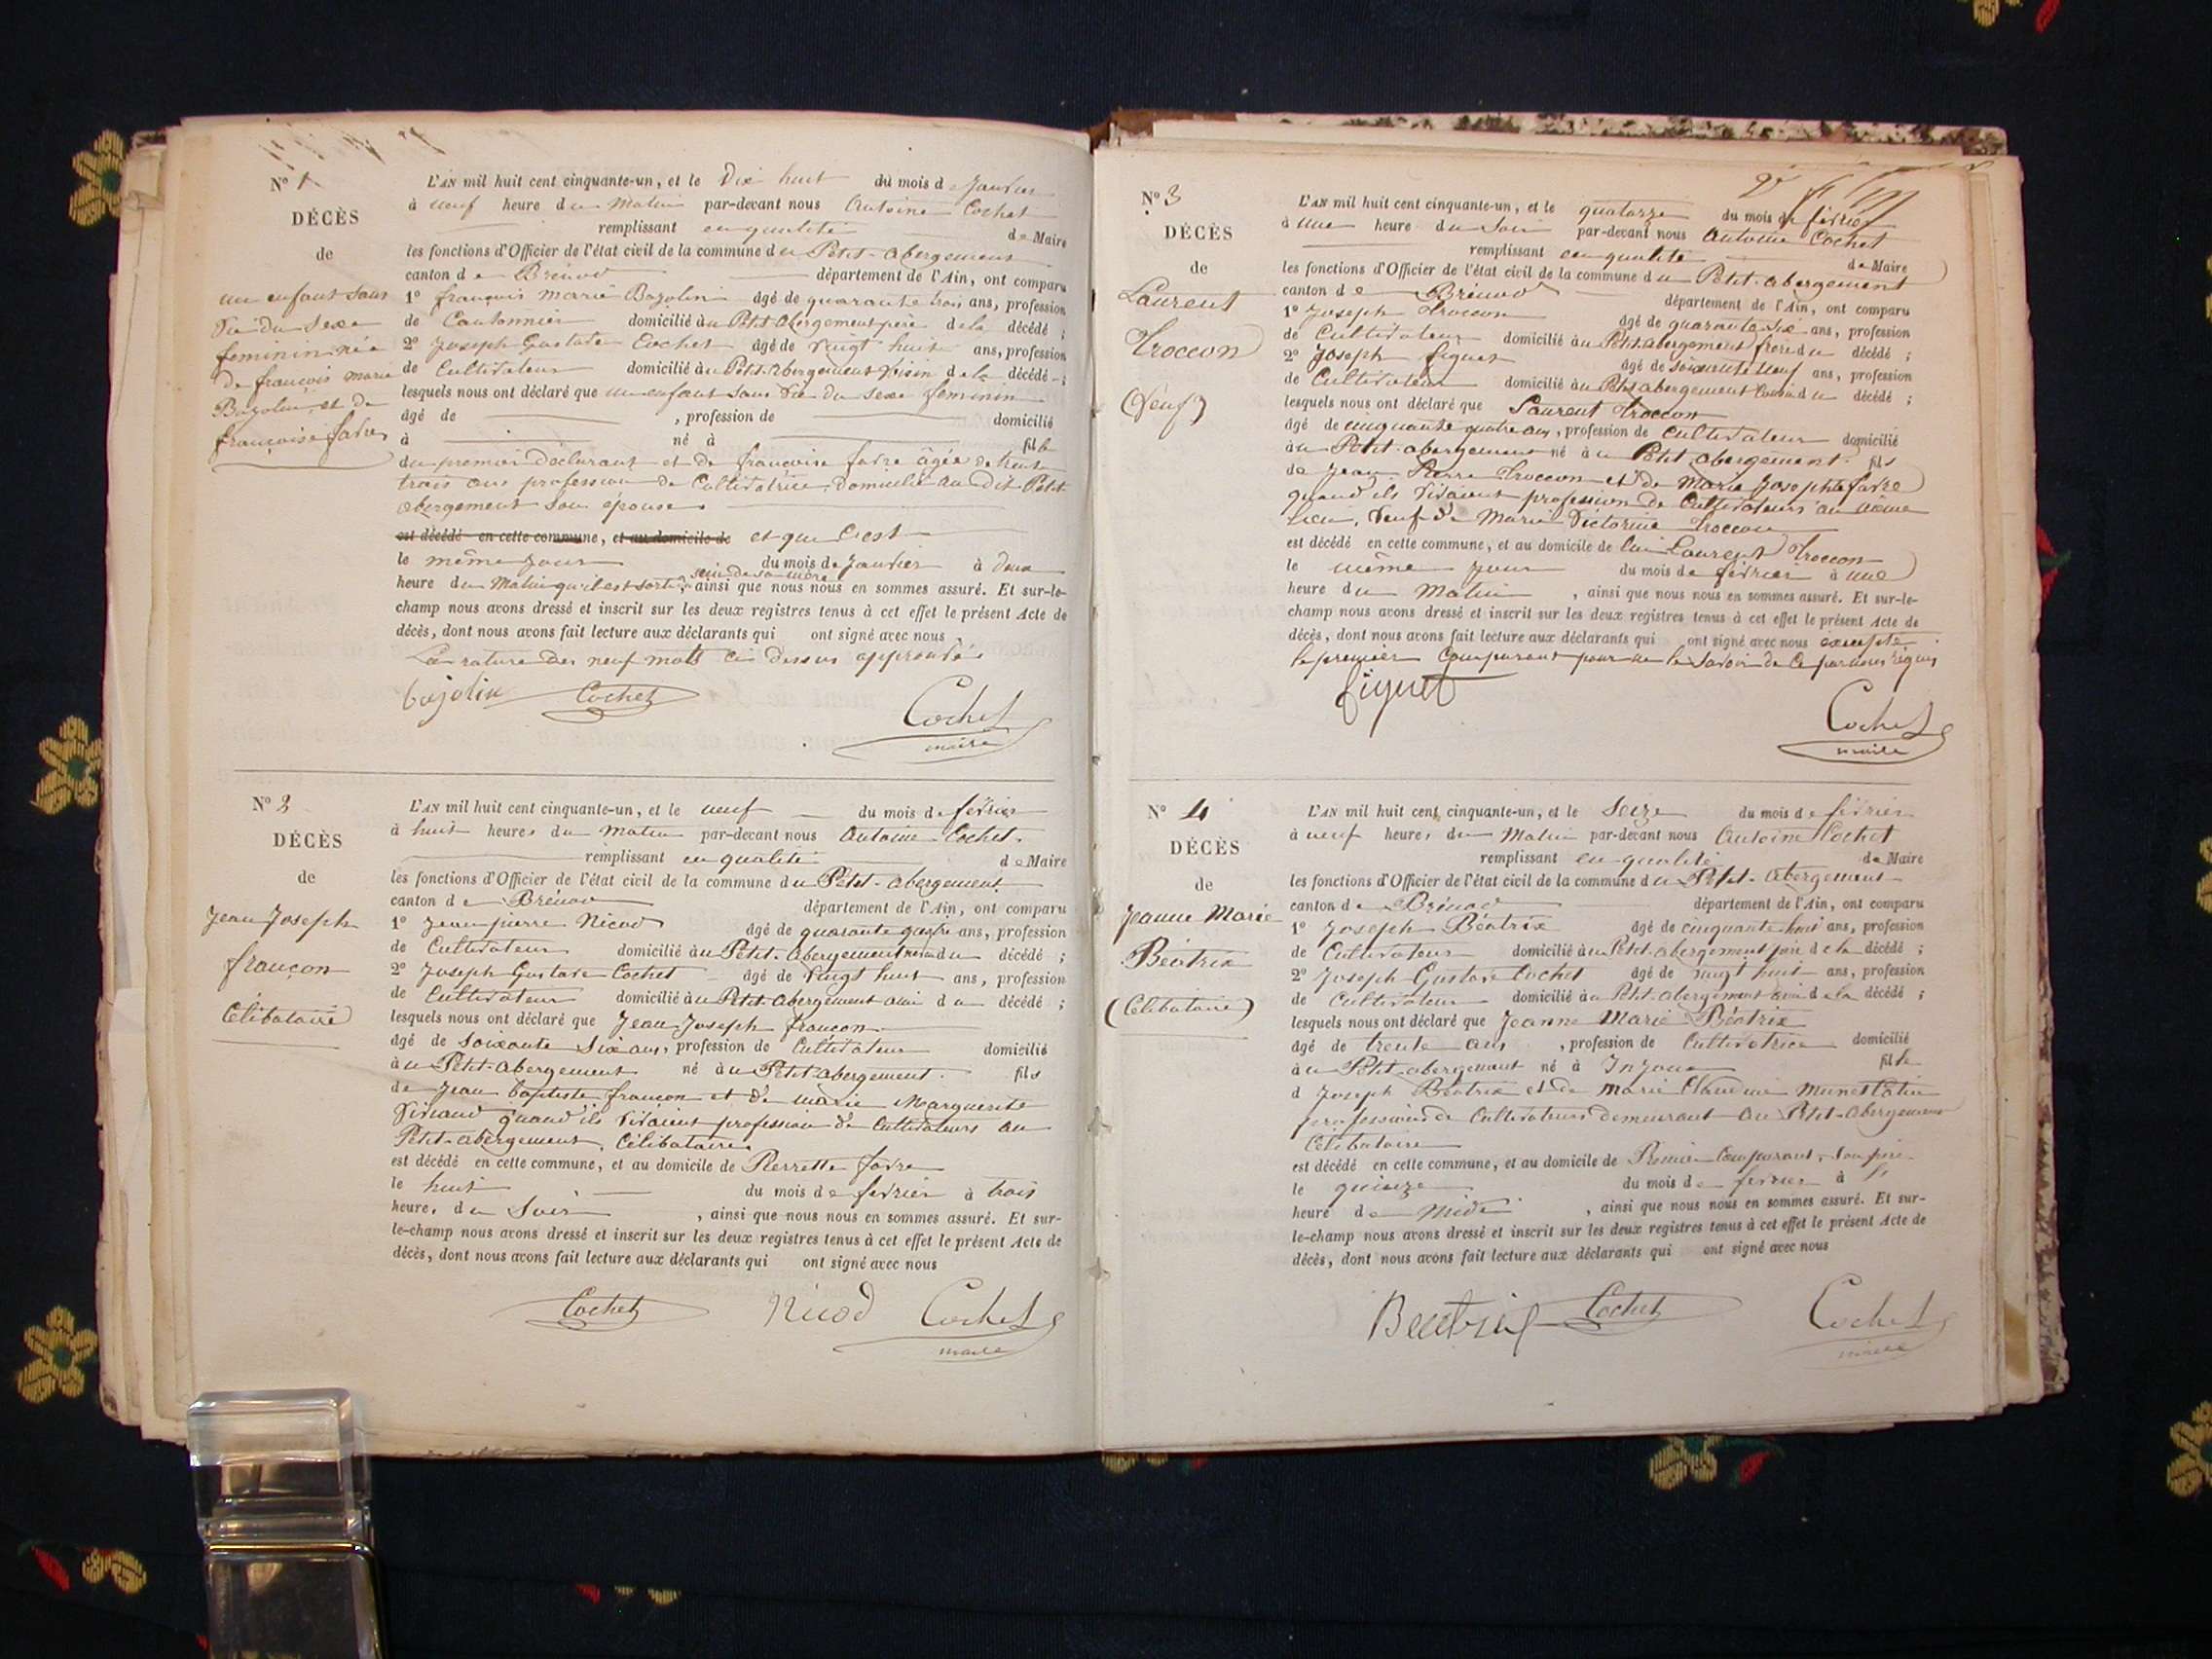 N° 1
DÉCÈS
de
un enfant sans
vie du sexe
feminin née
de francois marie
Bozolin et de
francoise favre
L'AN mil huit cent cinquante-un, et le Dix huit du mois de Janvier
à neuf heure du Matin par-devant nous Antoine Cochet
remplissant en qualité de Maire
les fonctions d'Officier de l'état civil de la commune du Petit-abergement
canton de Brénod département de l'Ain, ont comparu
1° françois marie Bozolin âgé de quarante trois ans, profession
de Cantonnier domicilié au Petit-Abergement père de la décédé ;
2° Joseph Gustave Cochet âgé de vingt huit ans, profession
de Cultivateur domicilié au Petit-Abergement voisin de la décédé ;
lesquels nous ont déclaré que un enfant sans vie du sexe feminin
âgé de , profession de domicilié
à né à fille
du premier déclarant et de francoise favre âgée de trente
trois ans profession de Cultivatrice, domicilié au dit Petit
abergement son épouse
est décédé en cette commune, et au domicile de et que c'est
le même jour du mois de Janvier à deux
heure du Matin qu'il est sorti du sein de sa mère, ainsi que nous nous en sommes assuré. Et sur-le-
champ nous avons dressé et inscrit sur les deux registres tenus à cet effet le présent Acte de
décès, dont nous avons fait lecture aux déclarants qui ont signé avec nous
La rature des neuf mots ci dessus approuvée
bojolin Cochet
Cochet
maire
N° 2
DÉCÈS
de
Jean Joseph
françon
Célibataire
L'AN mil huit cent cinquante-un, et le neuf du mois de fevrier
à huit heures du matin par-devant nous Antoine Cochet
remplissant en qualité de Maire
les fonctions d'Officier de l'état civil de la commune du Petit-abergement
canton de Brénod département de l'Ain, ont comparu
1° Jean pierre Nicod âgé de quarante quatre ans, profession
de Cultivateur domicilié au Petit-Abergement voisin du décédé ;
2° Joseph Gustave Cochet âgé de vingt huit ans, profession
de Cultivateur domicilié au Petit-abergement ami du décédé ;
lesquels nous ont déclaré que Jean Joseph françon
âgé de soixante six ans, profession de Cultivateur domicilié
au Petit-abergement né au Petit-abergement fils
de Jean baptiste françon et de marie Marguerite
quand ils vivaient profession de Cultivateurs au
Petit-abergement, Célibataire
est décédé en cette commune, et au domicile de Pierrette favre
le huit du mois de fevrier à trois
heures du soir , ainsi que nous nous en sommes assuré. Et sur-
le-champ nous avons dressé et inscrit sur les deux registres tenus à cet effet le présent Acte de
décès, dont nous avons fait lecture aux déclarants qui ont signé avec nous
Cochet Nicod Cochet
maire
N° 3
DÉCÈS
de
Laurent
Troccon
(veuf)
L'AN mil huit cent cinquante-un, et le quatorze du mois de fevrier
à une heure du soir par-devant nous Antoine Cochet
remplissant en qualité de Maire
les fonctions d'Officier de l'état civil de la commune du Petit-abergement
canton de Brénod département de l'Ain, ont comparu
1° Joseph Troccon âgé de quarante six ans, profession
de Cultivateur domicilié au Petit-abergement frere du décédé ;
2° Joseph figuet âgé de soixante neuf ans, profession
de Cultivateur domicilié au Petit abergement Cousin du décédé ;
lesquels nous ont déclaré que Laurent Troccon
âgé de cinquante quatre ans, profession de Cultivateur domicilié
au Petit-abergement né au Petit abergement fils
de Jean Pierre Troccon et de Marie Josephte favre
quand ils vivaient profession de Cultivateurs au même
lieu, veuf de Marie Victorine Troccon
est décédé en cette commune, et au domicile de lui Laurent Troccon
le même jour du mois de février à une
heure du Matin , ainsi que nous nous en sommes assuré. Et sur-le-
champ nous avons dressé et inscrit sur les deux registres tenus à cet effet le présent Acte de
décès, dont nous avons fait lecture aux déclarants qui ont signé avec nous excepté
le premier Comparant pour ne le savoir de ce par nous réquis
figuet
Cochet
maire
N° 4
DÉCÈS
de
Jeanne Marie
Béatrix
(Célibataire)
L'AN mil huit cent cinquante-un, et le Seize du mois de février
à neuf heures du Matin par-devant nous Antoine Cochet
remplissant en qualité de Maire
les fonctions d'Officier de l'état civil de la commune du Petit-abergement
canton de Brénod département de l'Ain, ont comparu
1° Joseph Béatrix âgé de cinquante huit ans, profession
de Cultivateur domicilié au Petit-abergement père de la décédé ;
2° Joseph Gustave Cochet âgé de vingt huit ans, profession
de Cultivateur domicilié au Petit-abergement ami de la décédé ;
lesquels nous ont déclaré que Jeanne Marie Béatrix
âgé de trente ans , profession de Cultivatrice domicilié
au Petit-abergement né à Injoux fille
d Joseph Béatrix et de marie Claudine
profession de Cultivateurs demeurant au Petit-abergement
Célibataire
est décédé en cette commune, et au domicile de Premier Comparant, son père
le quinze du mois de fevrier à
heure de midi , ainsi que nous nous en sommes assuré. Et sur-
le-champ nous avons dressé et inscrit sur les deux registres tenus à cet effet le présent Acte de
décès, dont nous avons fait lecture aux déclarants qui ont signé avec nous
Beatrix Cochet Cochet
maire